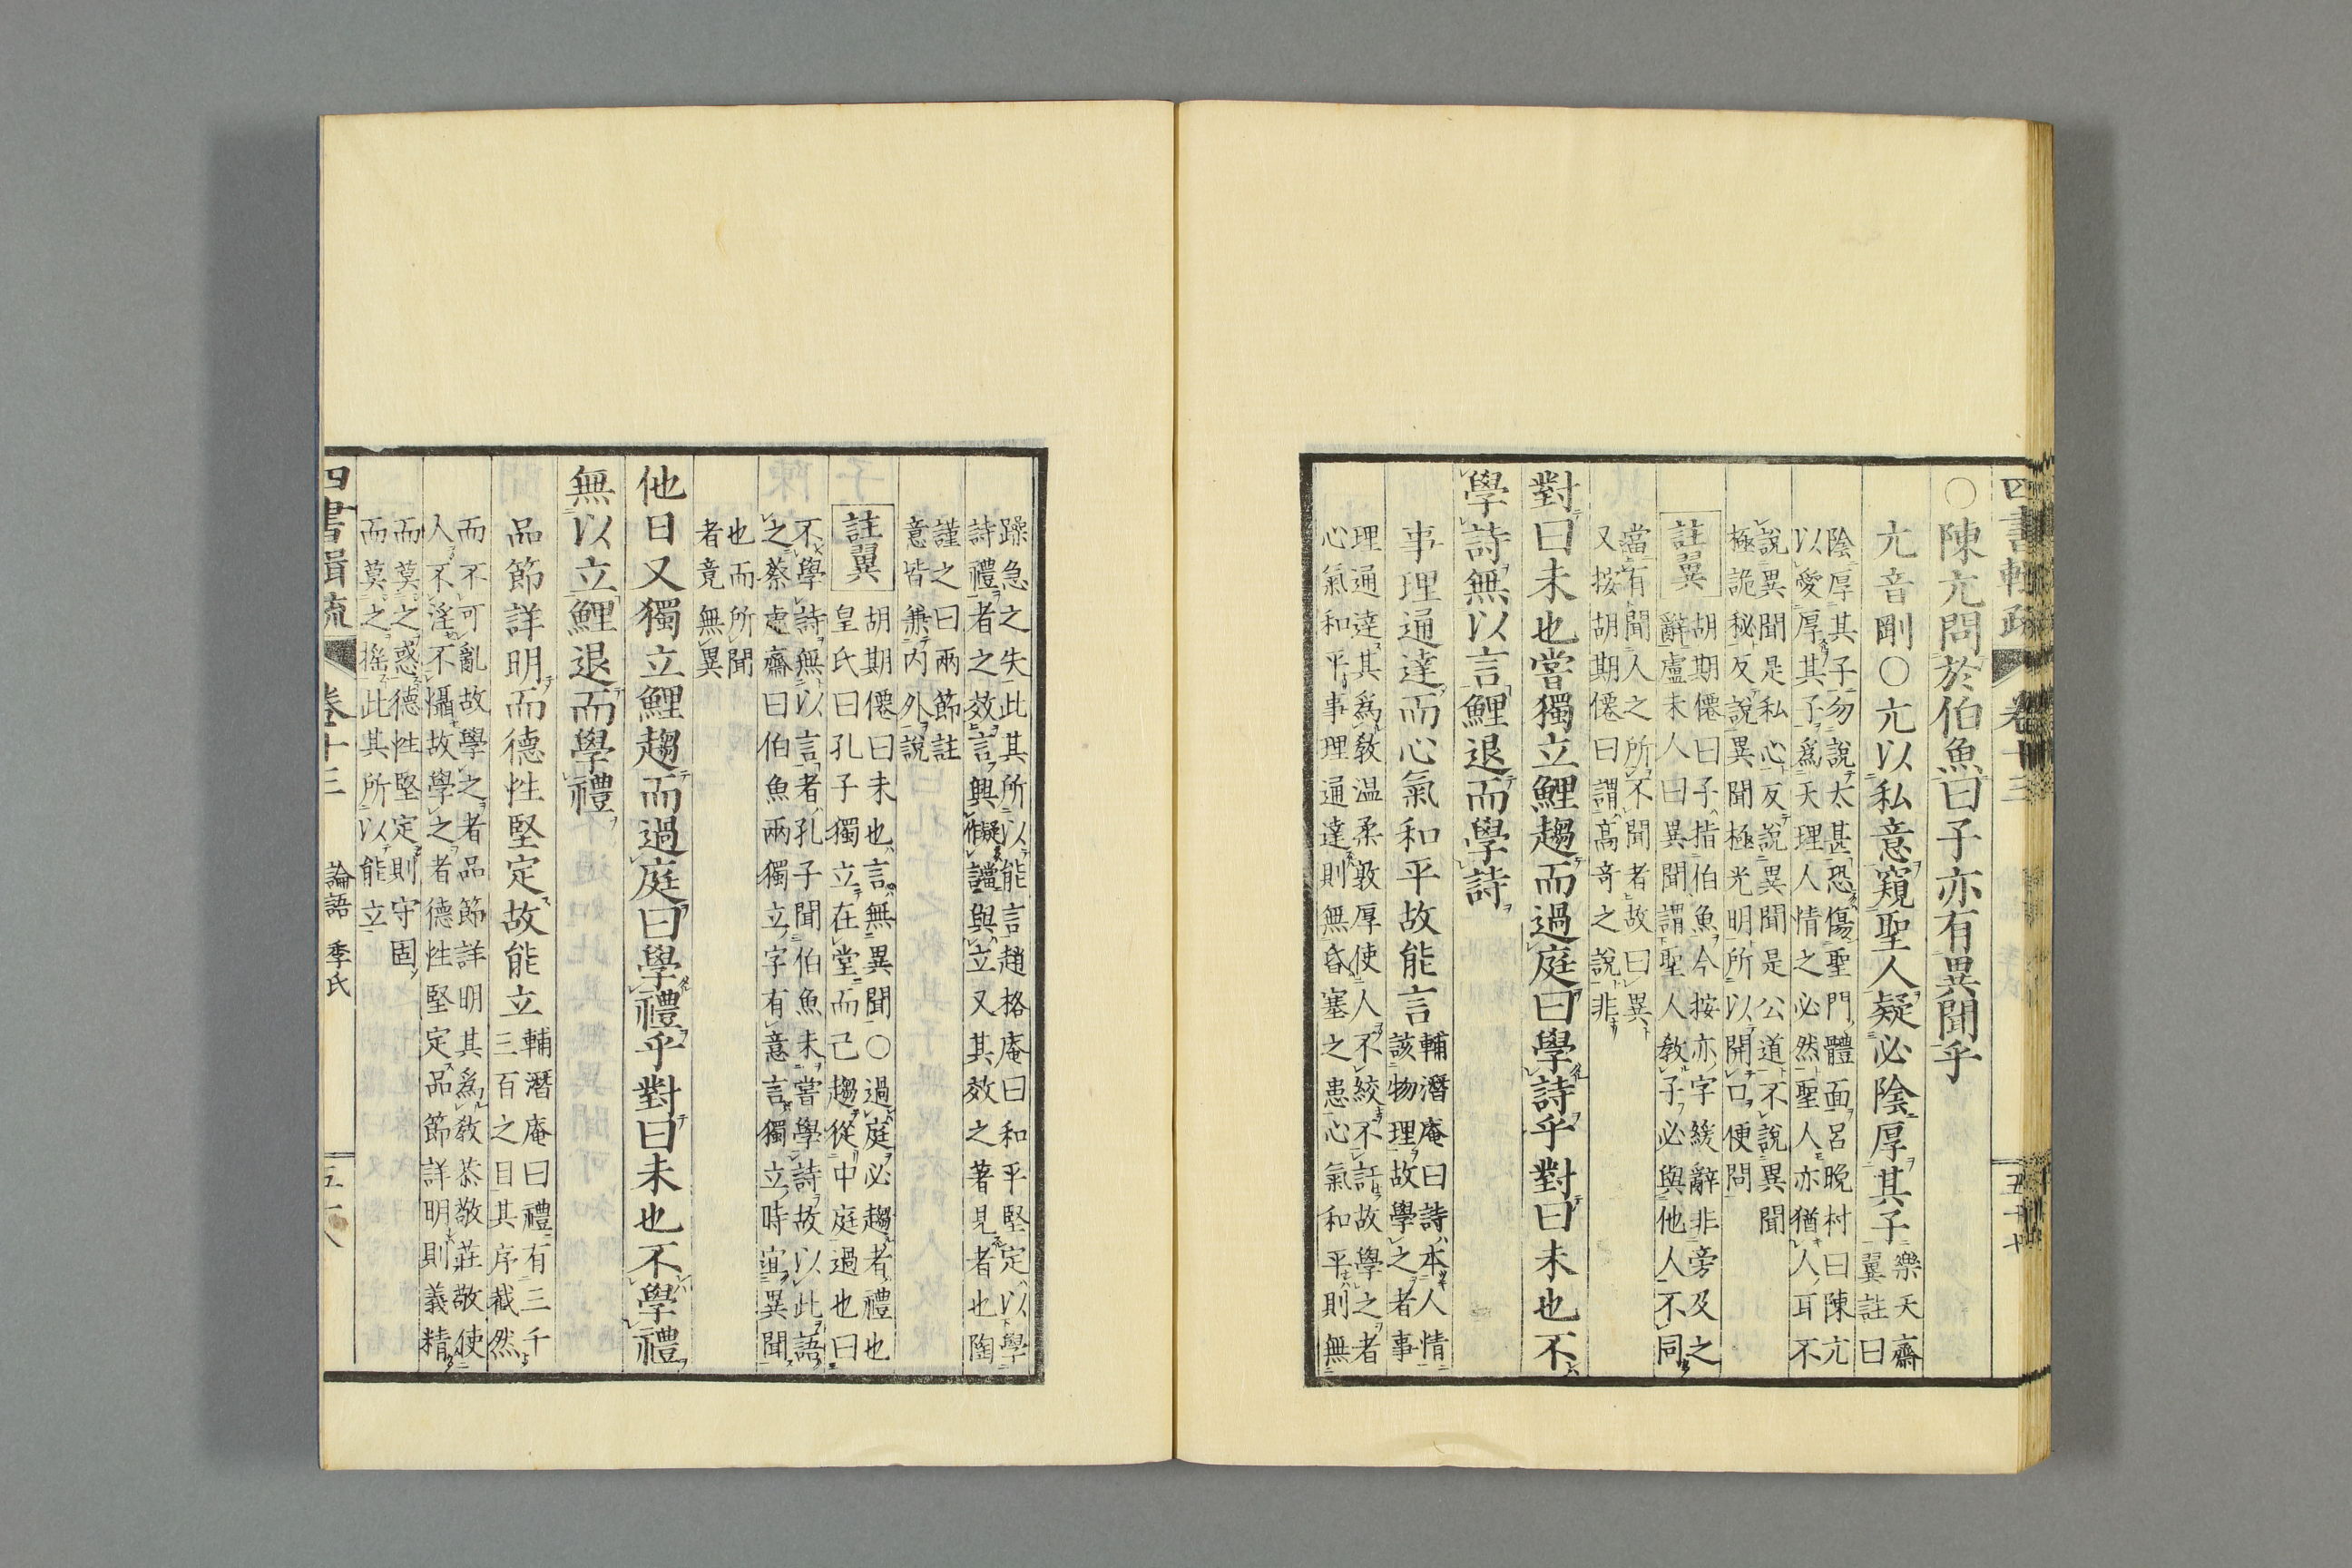 四書輯疏 卷十三 五十七
○陳亢問於伯魚曰子亦有異聞乎
亢音剛○亢以私意窺聖人疑必陰厚其子 樂天齋
翼註曰
陰厚其子勿說太甚恐傷聖門體面呂晚村曰陳亢
以愛厚其子爲天理人情之必然聖人亦猶人耳不
說異聞是私心反說異聞是公道不說異聞
極詭秘反說異聞極光明所以開口便問
註翼 胡期僊曰子指伯魚今按亦字緩辭非旁及之
辭盧未人曰異聞謂聖人敎子必與他人不同
當有聞人之所不聞者故曰異
又按胡期僊曰謂高奇之說非
對曰未也嘗獨立鯉趨而過庭曰學詩乎對曰未也不
學詩無以言鯉退而學詩
事理通達而心氣和平故能言 輔潛庵曰詩本人情
該物理故學之者事
理通達其爲敎温柔敦厚使人不絞不訐故學之者
心氣和平事理通達則無昏塞之患心氣和平則無
躁急之失此其所以能言趙格庵曰和平堅定以學
詩禮者之效言興擬作讜與立又其效之著見者也陶
謹之曰兩節註
意皆兼内外說
註翼 胡期僊曰未也言無異聞○過庭必趨者禮也
皇氏曰孔子獨立在堂而己趨從中庭過也曰
不學詩無以言者孔子聞伯魚未嘗學詩故以此語
之蔡虚齋曰伯魚兩獨立字有意言獨立時宜異聞
也而所聞
者竟無異
他日又獨立鯉趨而過庭曰學禮乎對曰未也不學禮
無以立鯉退而學禮
品節詳明而德性堅定故能立 輔潛庵曰禮有三千
三百之目其序截然
而不可亂故學之者品節詳明其爲敎恭敬莊敬使
人不淫不懾故學之者德性堅定品節詳明則義精
而莫之惑德性堅定則守固
而莫之搖此其所以能立
四書輯疏 卷十三 論語 季氏 五十八